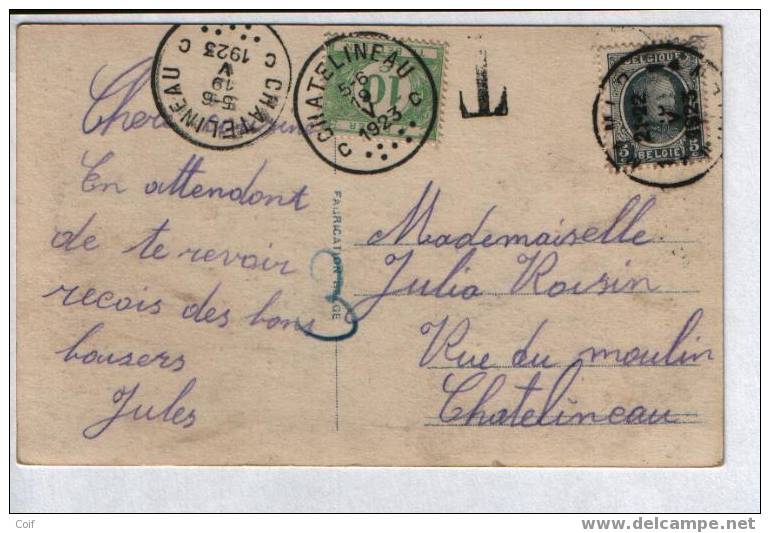 CHATELINEAU
5-6
19
V
1923
C C
CHATELINEAU
5-6
19
V
1923
C C
10
T
BELGIQUE
5 5
BELGIE
Chere
En attendont
de te revoir
recois des bons
baisers
Jules
FABRICATION BELGE
3
Mademoiselle
Julia Roisin
Rue du moulin
Chatelineau
Coif
www.delcampe.net